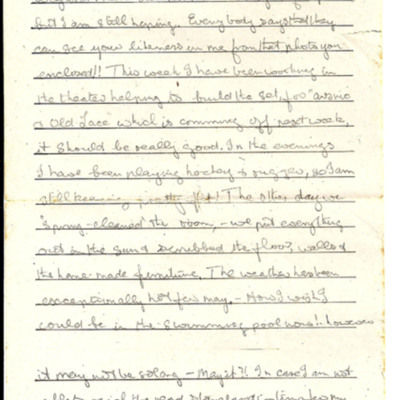 but I am still hoping. Everybody says that they
can see your likeness in me from that photo you
enclosed!! This week I have been working in
the theater helping to build the set, for "arsenic
& Old Lace" which is comming off next week,
it should be really good. In the evenings
I have been playing hockey & rugger, so I am
still keeping pretty fit! The other day we
"spring-cleaned" the room, - we put everything
out in the sun & scrubbed the floor, walls &
the home-made furniture. The weather has been
exceptionally hot for may. - How I wish I
could be in the swimming pool now!! however
it may not be so long - May it?! In case I am not